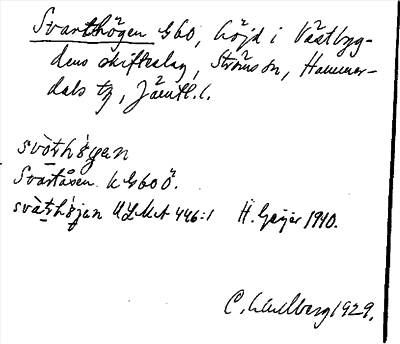 Svarthögen G60, höjd i Västbyg-
dens skifteslag, Ströms sn, Hammer-
dals tg, Jämtl. l.
svòthø̀gan
Svartåsen k G60 Ö.
svàthø̀jan ULMA 446:1 H. Geijer 1910.
C. Wahlberg 1929.